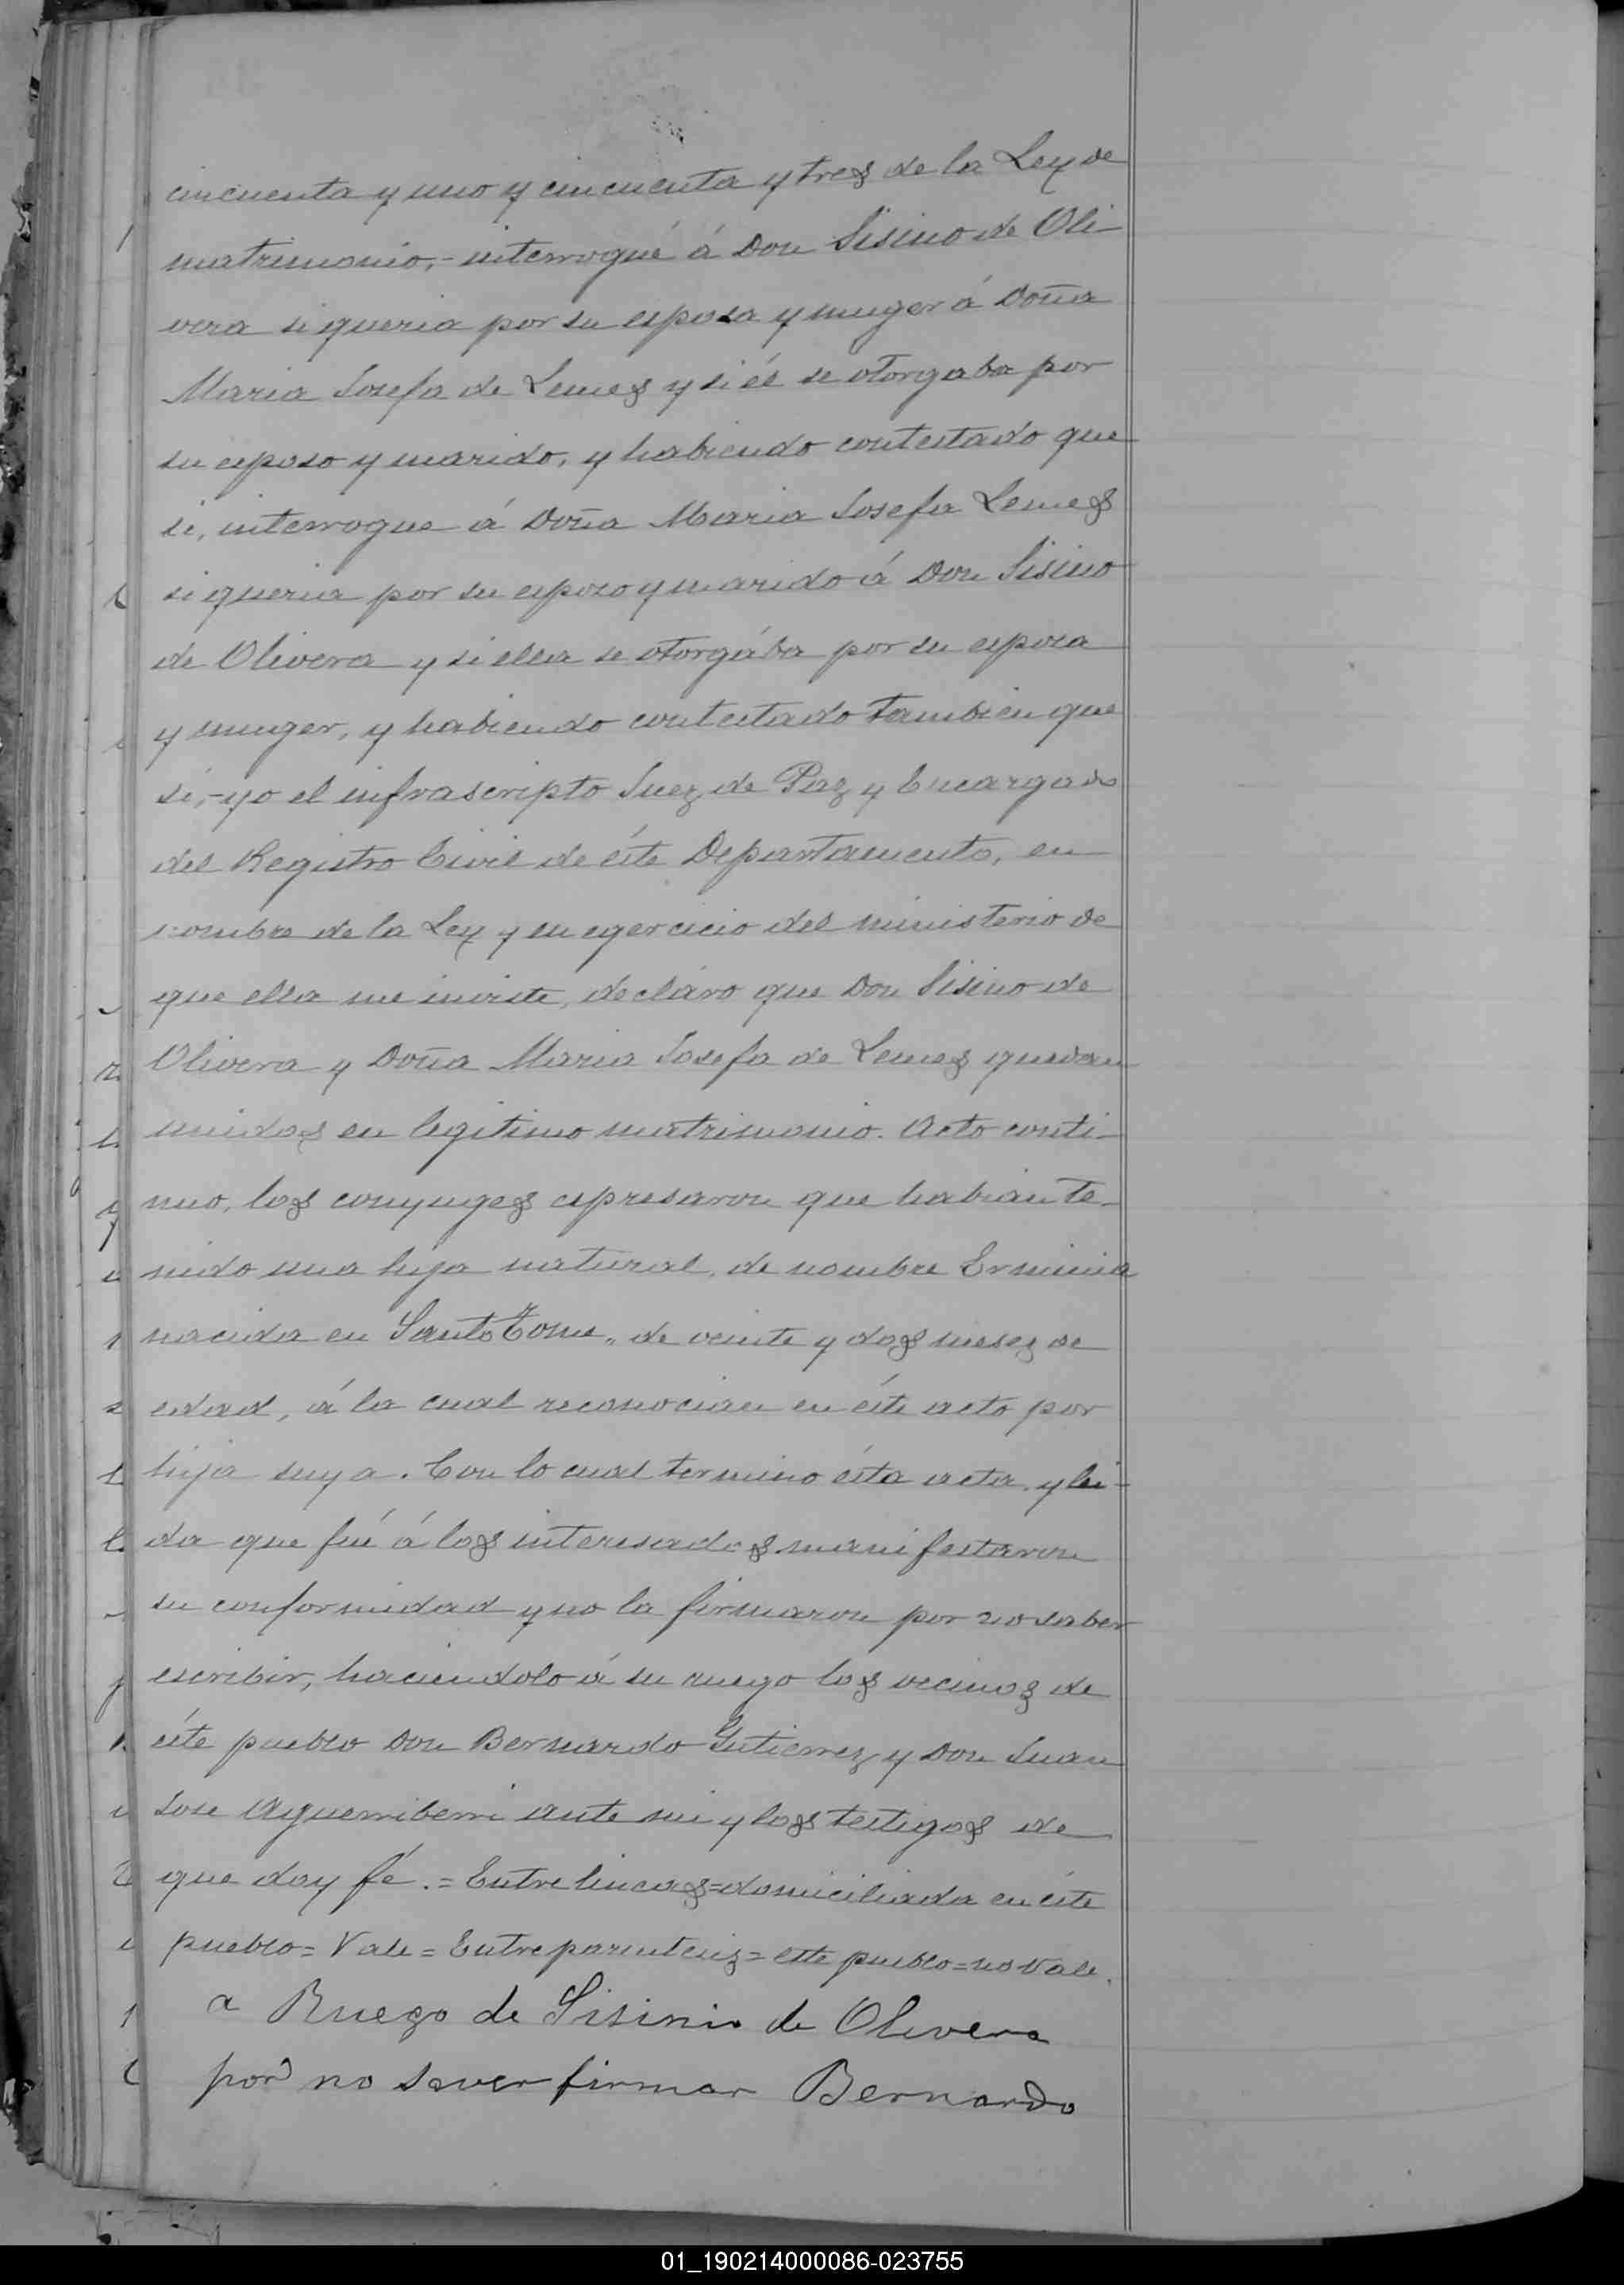 cincuenta y uno y cincuenta y tres de la Ley de
matrimonio,- interrogué á Don Sisino de Oli-
vera si queria por su esposa y muger á Doña
Maria Josefa de Lemes y si él se otorgaba por
su esposo y marido, y habiendo contestado que
si, interrogue á Doña Maria Josefa Lemes
si queria por su esposo y marido á Don Sisino
de Olivera y si ella se otorgába por su esposa
y muger, y habiendo contestado tambien que
si,-yo el infrascripto Juez de Paz y Encargado
del Registro Civil de éste Departamento, en
nombre de la Ley y en egercicio del ministerio de
que ella me inviste, decláro que Don Sisino de
Olivera y Doña Maria Josefa de Lemes quedan
unidos en legitimo matrimonio. Acto conti-
nuo, los conyuges espresaron que habian te-
nido una hija natural, de nombre Erminia
nacida en Santo Tome, de veinte y dos meses de
edad, á la cual reconocian en éste acto por
hija suya. Con lo cual termino ésta acta, y lei-
da que fué á los interesados manifestaron
su conformidad y no la firmaron por no saber
escribir, haciendolo á su ruego los vecinos de
éste pueblo Don Bernardo Gutierrez y Don Juan
Jose Aguerriberri ante mi y los testigos de
que doy fé.=Entre lineas=domiciliada en éste
pueblo=Vale=Entre parentesis=este pueblo=no vale.
a Ruego de Sisinio de Olivera
por no saver firmar Bernardo
01_190214000086-023755